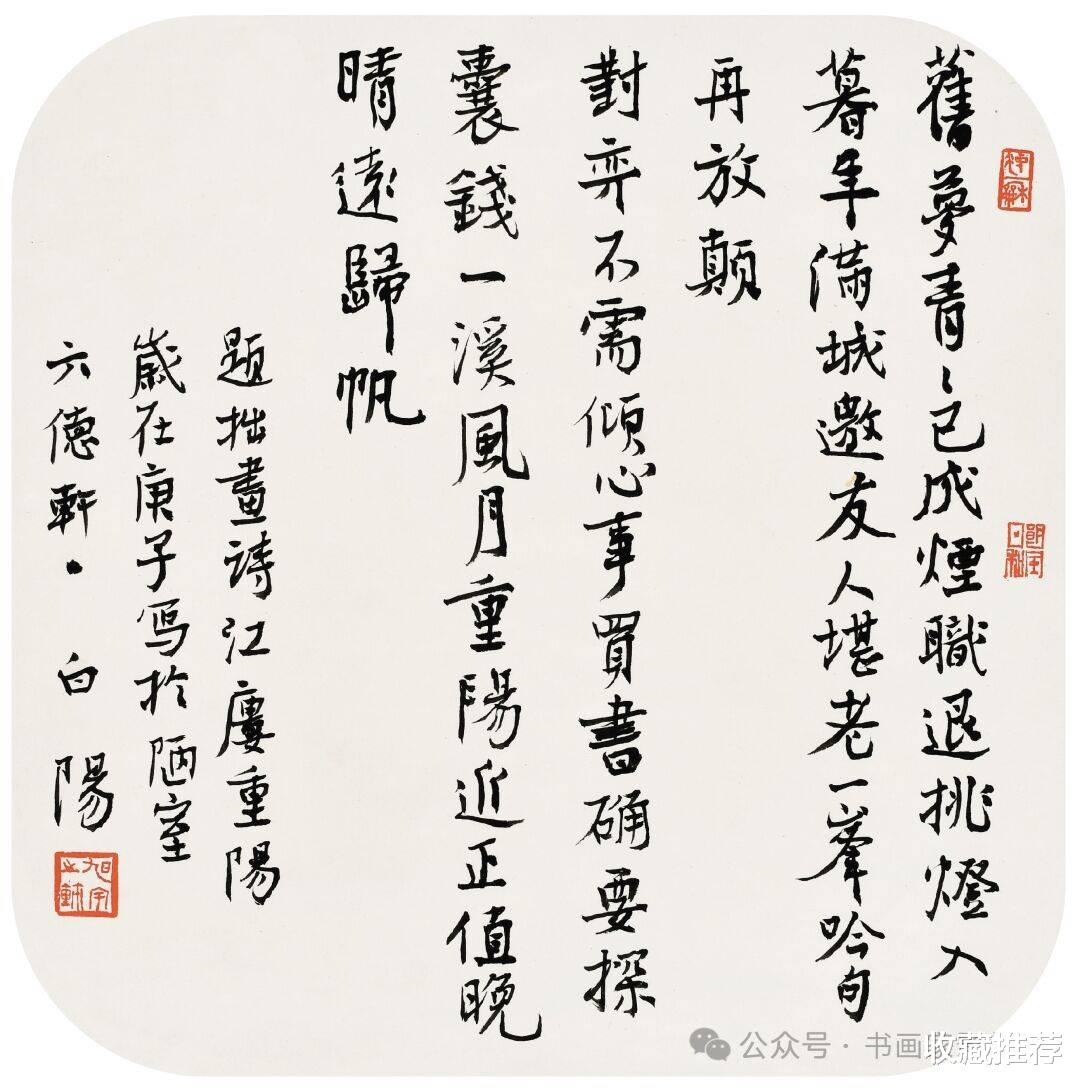 舊夢青青已成煙職退挑燈入
暮年滿城邀友人堪老一峯吟句
再放顛
對弈不需傾心事買書确要探
囊錢一溪風月重陽近正值晚
晴遠歸帆
題拙畫詩江廔重陽
歲在庚子写於陋室
六德軒·白陽
公众号·书画
收藏推荐